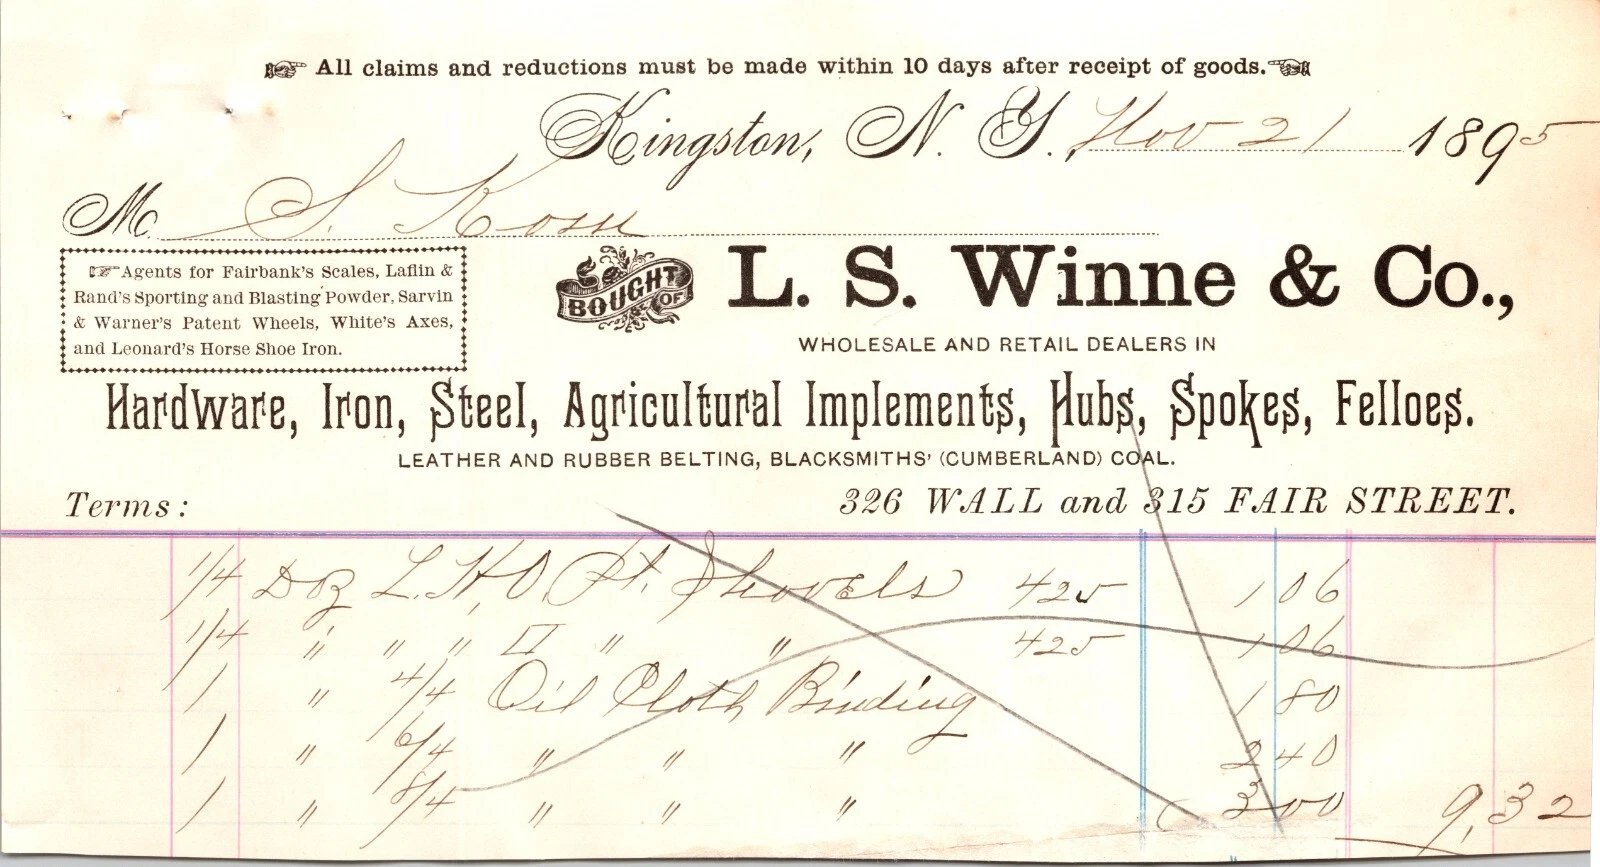 All claims and reductions must be made within 10 days after receipt of goods.
Kingston, N. Y., Nov 21 1895
M. S. Kosse
Agents for Fairbank's Scales, Laflin &
Rand's Sporting and Blasting Powder, Sarvin
& Warner's Patent Wheels, White's Axes,
and Leonard's Horse Shoe Iron.
BOUGHT OF
L. S. Winne & Co.,
WHOLESALE AND RETAIL DEALERS IN
Hardware, Iron, Steel, Agricultural Implements, Hubs, Spokes, Felloes.
LEATHER AND RUBBER BELTING, BLACKSMITHS' (CUMBERLAND) COAL.
Terms:
326 WALL and 315 FAIR STREET.
1/4 Doz L. H, O. Pt. Shovels 425 1 06
1/4 " " " II " " 425 1 06
1 " 4/4 Oil Cloth Binding 1 80
1 " 6/4 " " " 2 40
1 " 8/4 " " " 3 00 9,32